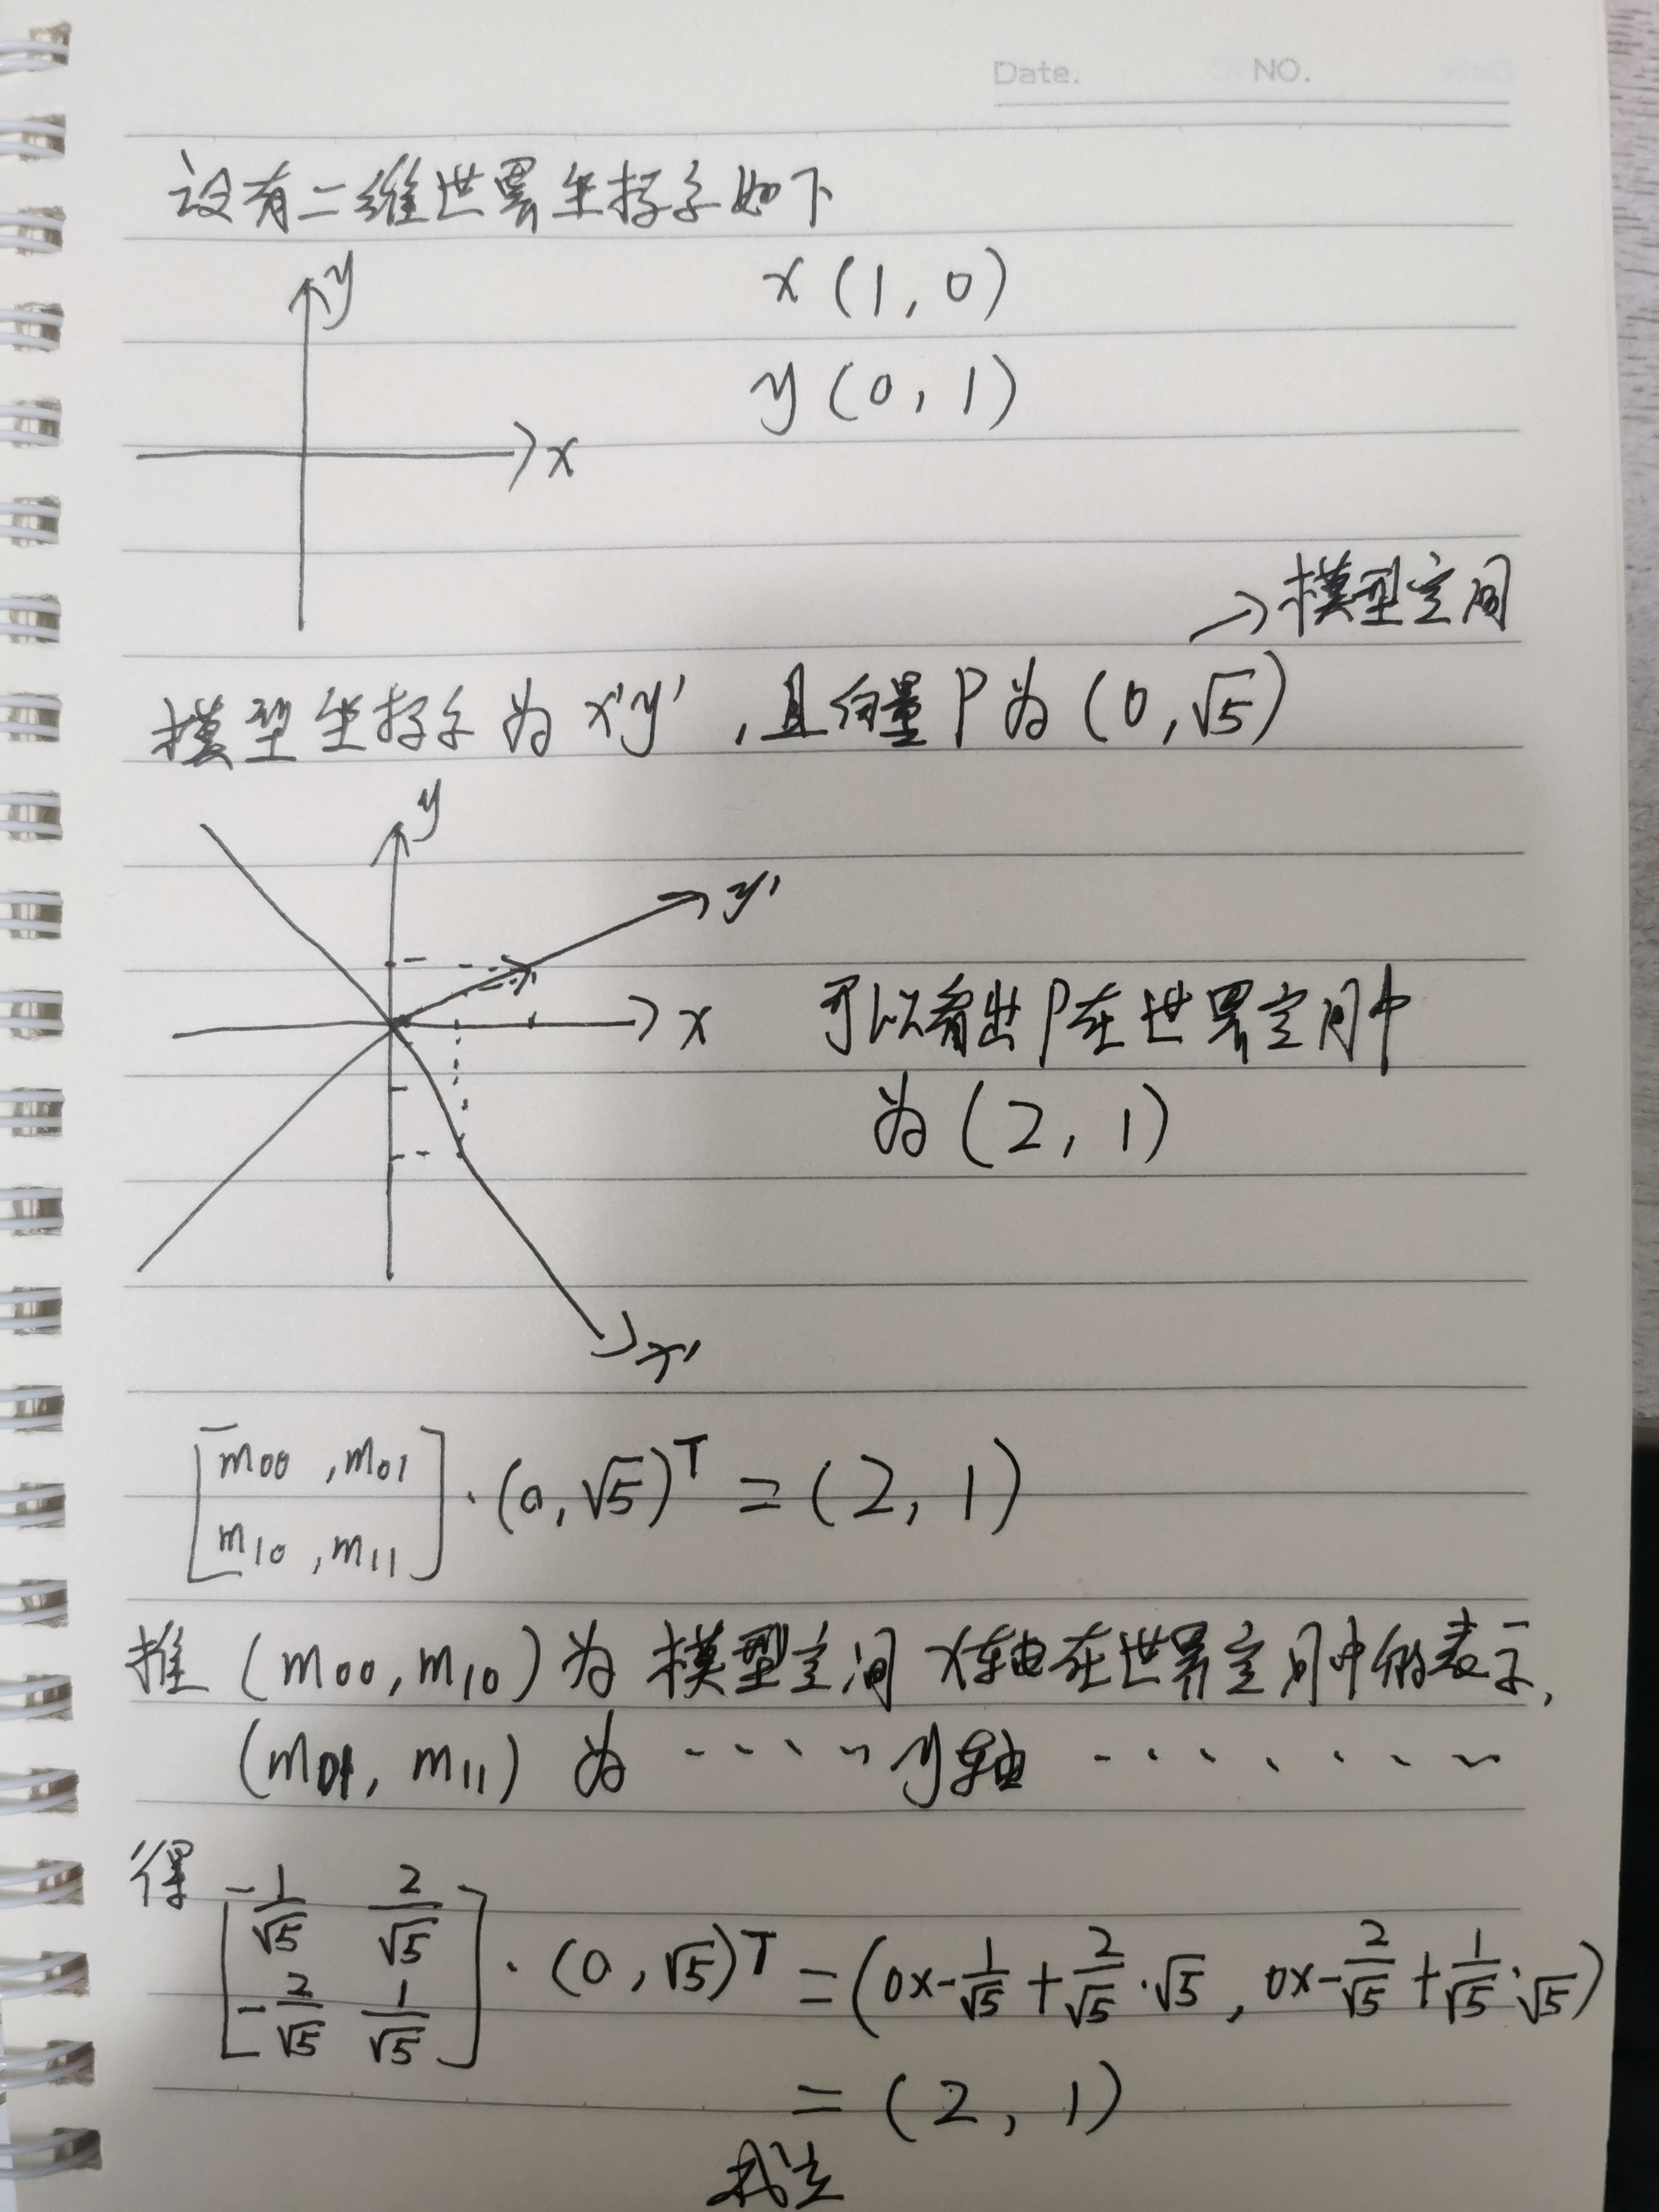 Date. NO.
设有二维世界坐标系如下
y
x (1, 0)
y (0, 1)
x
→模型空间
模型坐标系为 x'y' , 且向量P为 (0, √5)
y
y'
x
可以看出P在世界空间中
为 (2, 1)
x'
[m00 , m01
m10 , m11] · (0, √5)^T = (2, 1)
推 (m00, m10) 为 模型空间 x轴在世界空间中的表示,
(m01, m11) 为 ····· y轴 ········
得 [-1/√5 2/√5
-2/√5 1/√5] · (0, √5)^T = (0×-1/√5 + 2/√5 · √5 , 0×-2/√5 + 1/√5 · √5)
= (2, 1)
成立